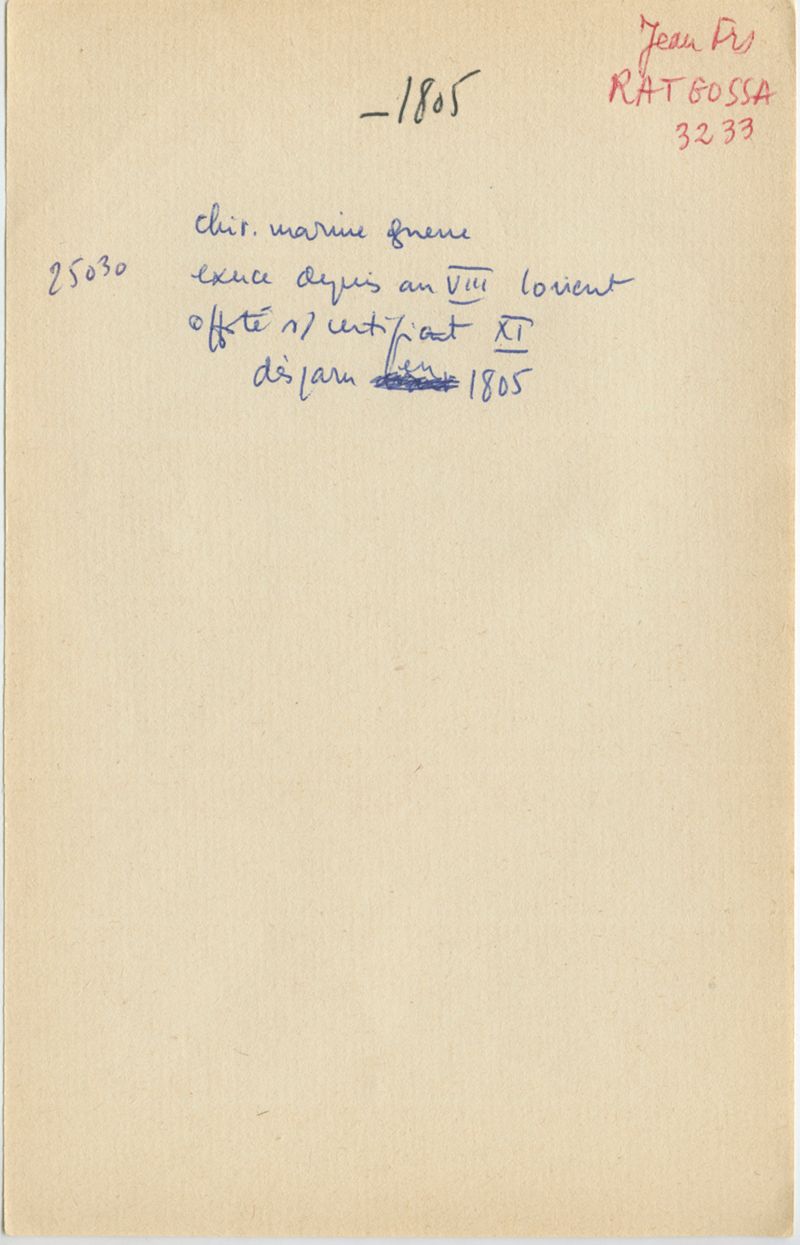 Jean Frs
RATGOSSA
3233
_ 1805
chir. marine guerre
25030 exerce depuis an VIII Lorient
s/ certificat XI
disparu en 1805